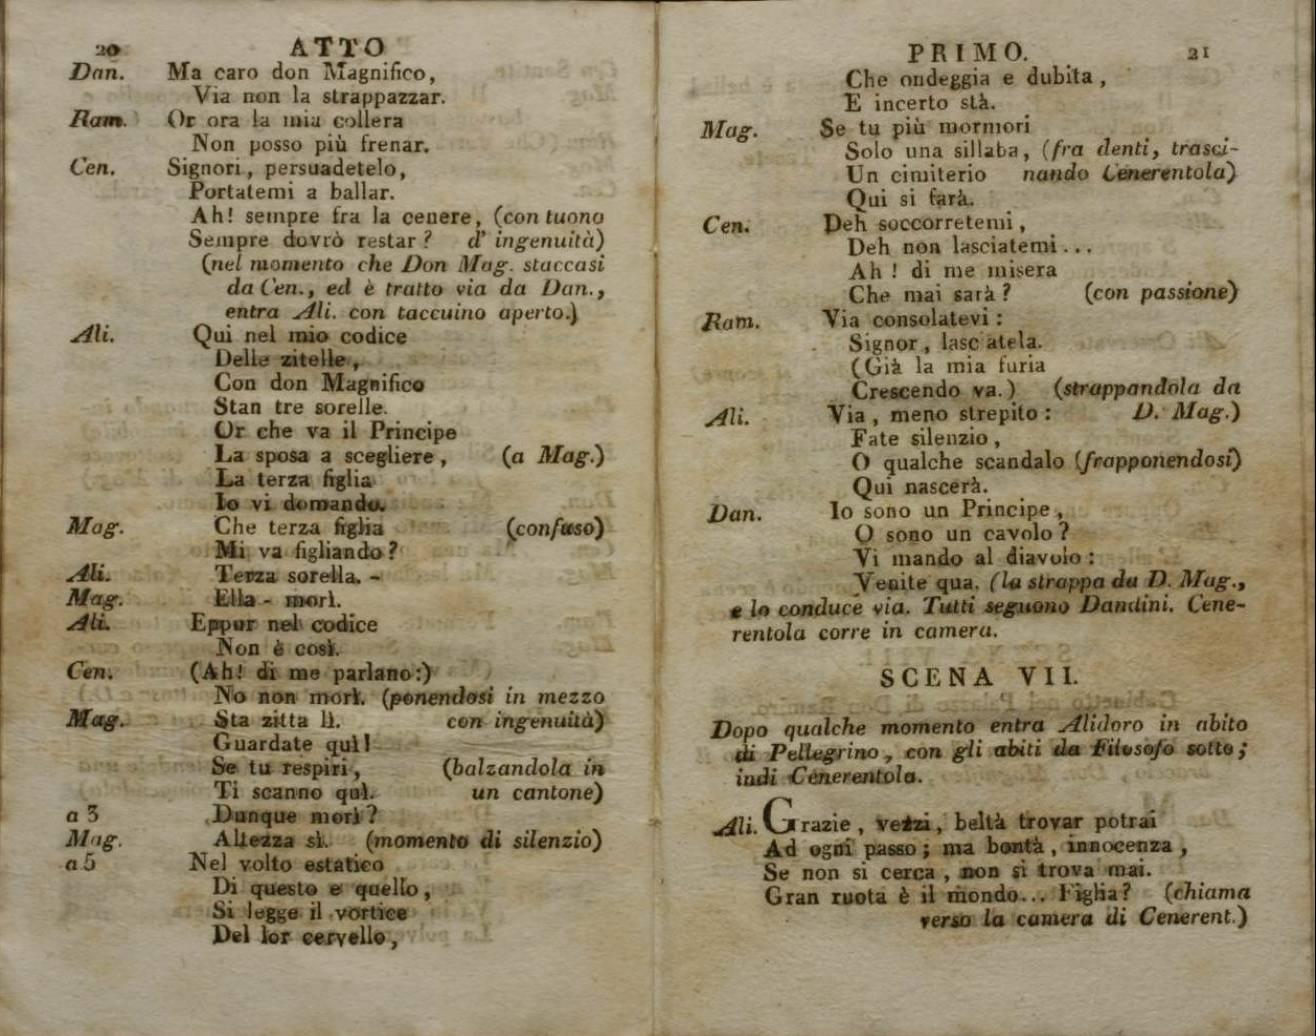 20 ATTO
Dan. Ma caro don Magnifico,
Via non la strappazzar.
Ram. Or ora la mia collera
Non posso più frenar.
Cen. Signori, persuadetelo,
Portatemi a ballar.
Ah! sempre fra la cenere, (con tuono
Sempre dovrò restar? d' ingenuità)
(nel momento che Don Mag. staccasi
da Cen., ed è tratto via da Dan.,
entra Ali. con taccuino aperto.)
Ali. Qui nel mio codice
Delle zitelle,
Con don Magnifico
Stan tre sorelle.
Or che va il Principe
La sposa a scegliere, (a Mag.)
La terza figlia
Io vi domando.
Mag. Che terza figlia (confuso)
Mi va figliando?
Ali. Terza sorella. -
Mag. Ella - morì.
Ali. Eppur nel codice
Non è così.
Cen. (Ah! di me parlano:)
No non morì. (ponendosi in mezzo
Mag. Sta zitta lì. con ingenuità)
Guardate quì!
Se tu respiri, (balzandola in
Ti scanno quì. un cantone)
a 3 Dunque morì?
Mag. Altezza sì. (momento di silenzio)
a 5 Nel volto estatico
Di questo e quello,
Si legge il vortice
Del lor cervello,
PRIMO. 21
Che ondeggia e dubita,
E incerto stà.
Mag. Se tu più mormori
Solo una sillaba, (fra denti, trasci-
Un cimiterio nando Cenerentola)
Qui si farà.
Cen. Deh soccorretemi,
Deh non lasciatemi...
Ah! di me misera
Che mai sarà? (con passione)
Ram. Via consolatevi:
Signor, lasc atela.
(Già la mia furia
Crescendo va.) (strappandola da
Ali. Via, meno strepito: D. Mag.)
Fate silenzio,
O qualche scandalo (frapponendosi)
Qui nascerà.
Dan. Io sono un Principe,
O sono un cavolo?
Vi mando al diavolo:
Venite qua. (la strappa da D. Mag.,
e lo conduce via. Tutti seguono Dandini. Cene-
rentola corre in camera.
SCENA VII.
Dopo qualche momento entra Alidoro in abito
di Pellegrino, con gli abiti da Filosofo sotto;
indi Cenerentola.
Ali. Grazie, vezzi, beltà trovar potrai
Ad ogni passo; ma bontà, innocenza,
Se non si cerca, non si trova mai.
Gran ruota è il mondo... Figlia? (chiama
verso la camera di Cenerent.)